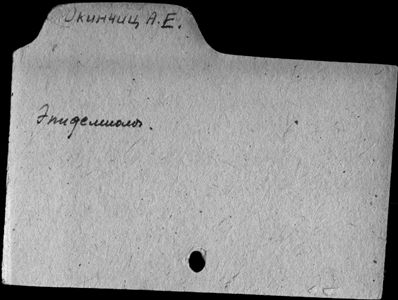 Окинчиц А.Е.
Эпидемиолог.